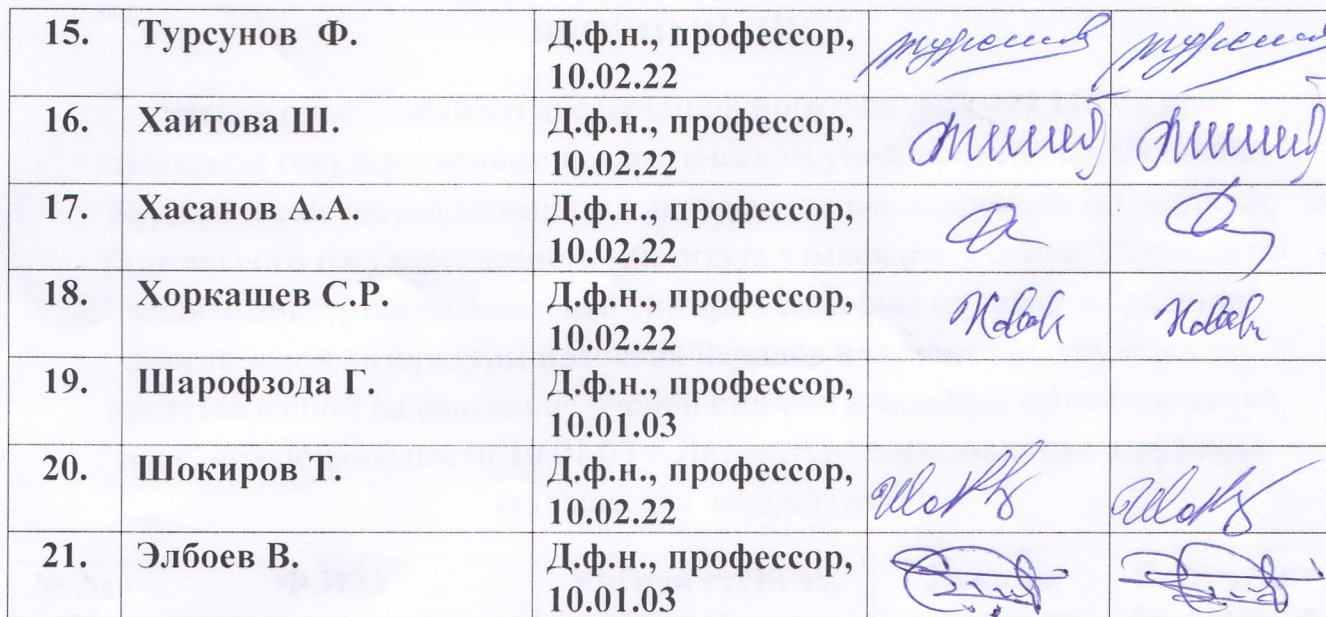 15. Турсунов Ф. Д.ф.н., профессор,
10.02.22
16. Хаитова Ш. Д.ф.н., профессор,
10.02.22
17. Хасанов А.А. Д.ф.н., профессор,
10.02.22
18. Хоркашев С.Р. Д.ф.н., профессор,
10.02.22
19. Шарофзода Г. Д.ф.н., профессор,
10.01.03
20. Шокиров Т. Д.ф.н., профессор,
10.02.22
21. Элбоев В. Д.ф.н., профессор,
10.01.03